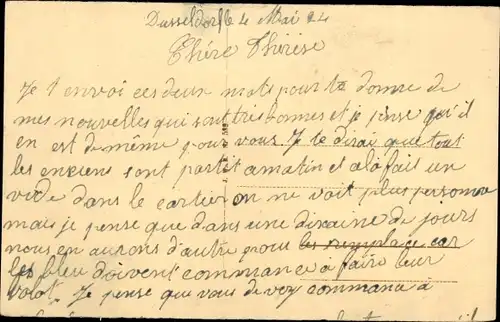 Dusseldorf le 4 Mai 24
Chére Thérèse
Je t envoi ces deux mots pour te donne de
mes nouvelles qui sont tres bonnes et je pense qu'il
en est de même pour vous. Je te dirai que tout
les enciens sont partit a matin et ala fait un
vide dans le cartier on ne voit plus personne
mais je pense que dans une dixaine de jours
nous en aurons d'autre pour les remplace car
les bleu doivent commance à faire leur
volot. Je pense que vous devez commance à